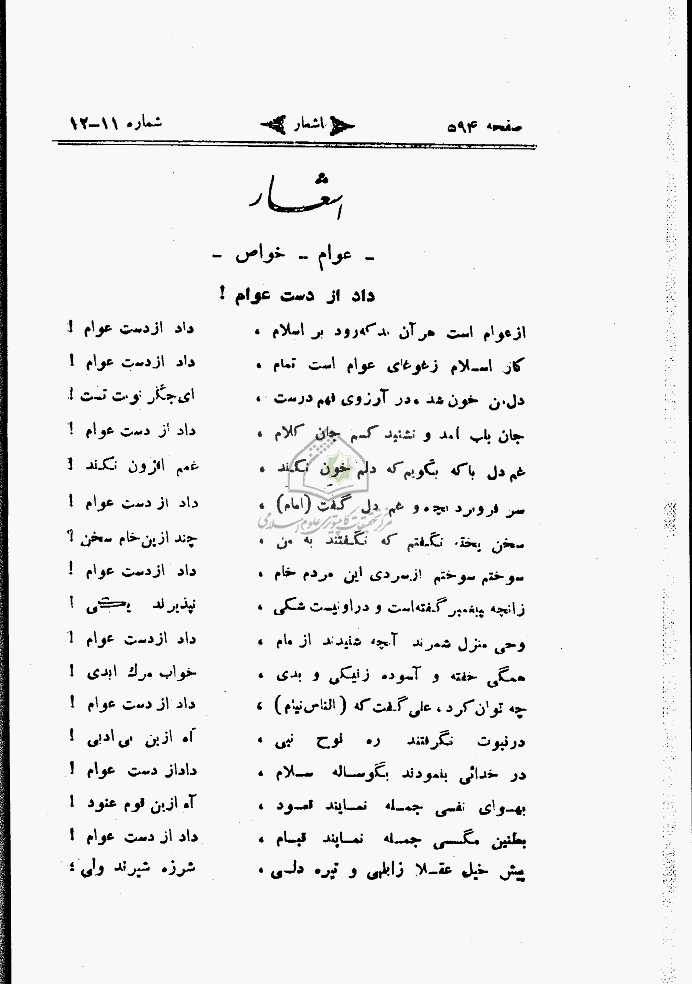 صفحه ۵۹۴ اشعار شماره ۱۱–۱۲
اشعار
– عوام – خواص –
داد از دست عوام !
ازعوام است هرآن بدکه‌رود بر اسلام ، داد ازدست عوام !
کار اسلام زغوغای عوام است تمام ، داد ازدست عوام !
دل من خون شد ، در آرزوی فهم درست ، ای‌جگر نوبت تست !
جان بلب آمد و نشنید کسم جان کلام ، داد از دست عوام !
غم دل باکه بگویم‌که دلم خون نکند ، غمم افزون نکند !
سر فروبرد بچه و غم دل گفت (امام) ، داد از دست عوام !
سخن پخته نگفتم که نگفتند به من ، چند ازین‌خام سخن ؟
سوختم سوختم ازسردی این مردم خام ، داد ازدست عوام !
زانچه پیغمبر گفته‌است و دراونیست شکی ، نپذیرند یکی !
وحی منزل شمرند آنچه شنیدند از مام ، داد ازدست عوام !
همگی خفته و آسوده زنیکی و بدی ، خواب مرك ابدی !
چه توان‌کرد ، علی‌گفت‌که (الناس نیام) ، داد ازدست عوام !
درنبوت نگرفتند ره نوح نبی ، آه ازین بی‌ادبی !
در خدائی بنمودند بگوساله سلام ، دادازدست عوام !
بهوای نفسی جمله نمایند قعود ، آه ازین قوم عنود !
بطنین مگسی جمله نمایند قیام ، داد از دست عوام !
پیش خیل عقلا زابلهی و تیره دلی ، شرزه شیرند ولی ؛
مرکز تحقیقات کامپیوتری علوم اسلامی